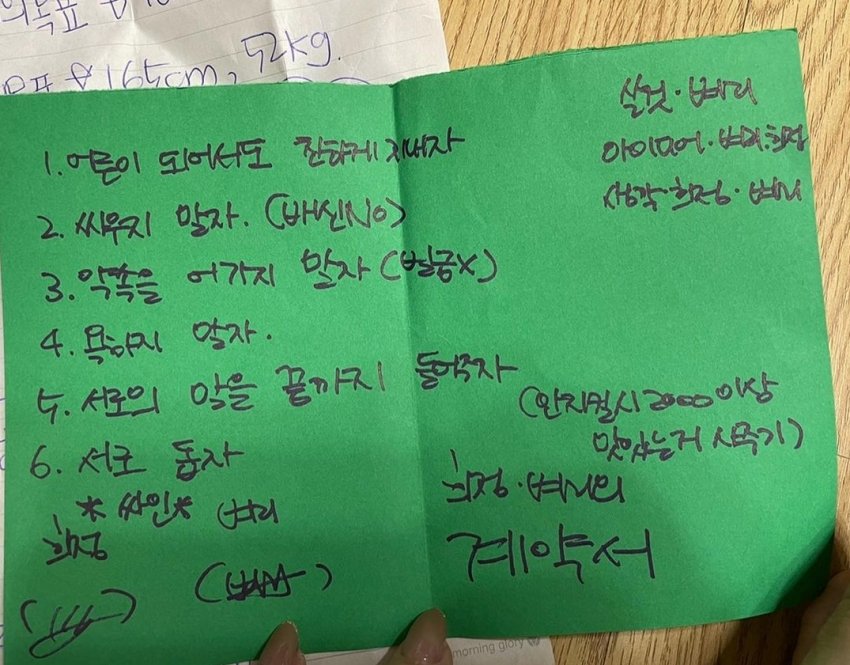 165cm, 52kg.
1. 어른이 되어서도 친하게 지내자
2. 싸우지 말자. (배신No)
3. 약속을 어가지 말자 (벌금X)
4. 욕하지 말자.
5. 서로의 말을 끝까지 들어주자
6. 서로 돕자
*싸인* 벼리
희정
벼리
아이디어·벼리.희정
생각·희정·벼리
(안지킬시 2000이상
맛있는거 사주기)
희정·벼리의
계약서
morning glory